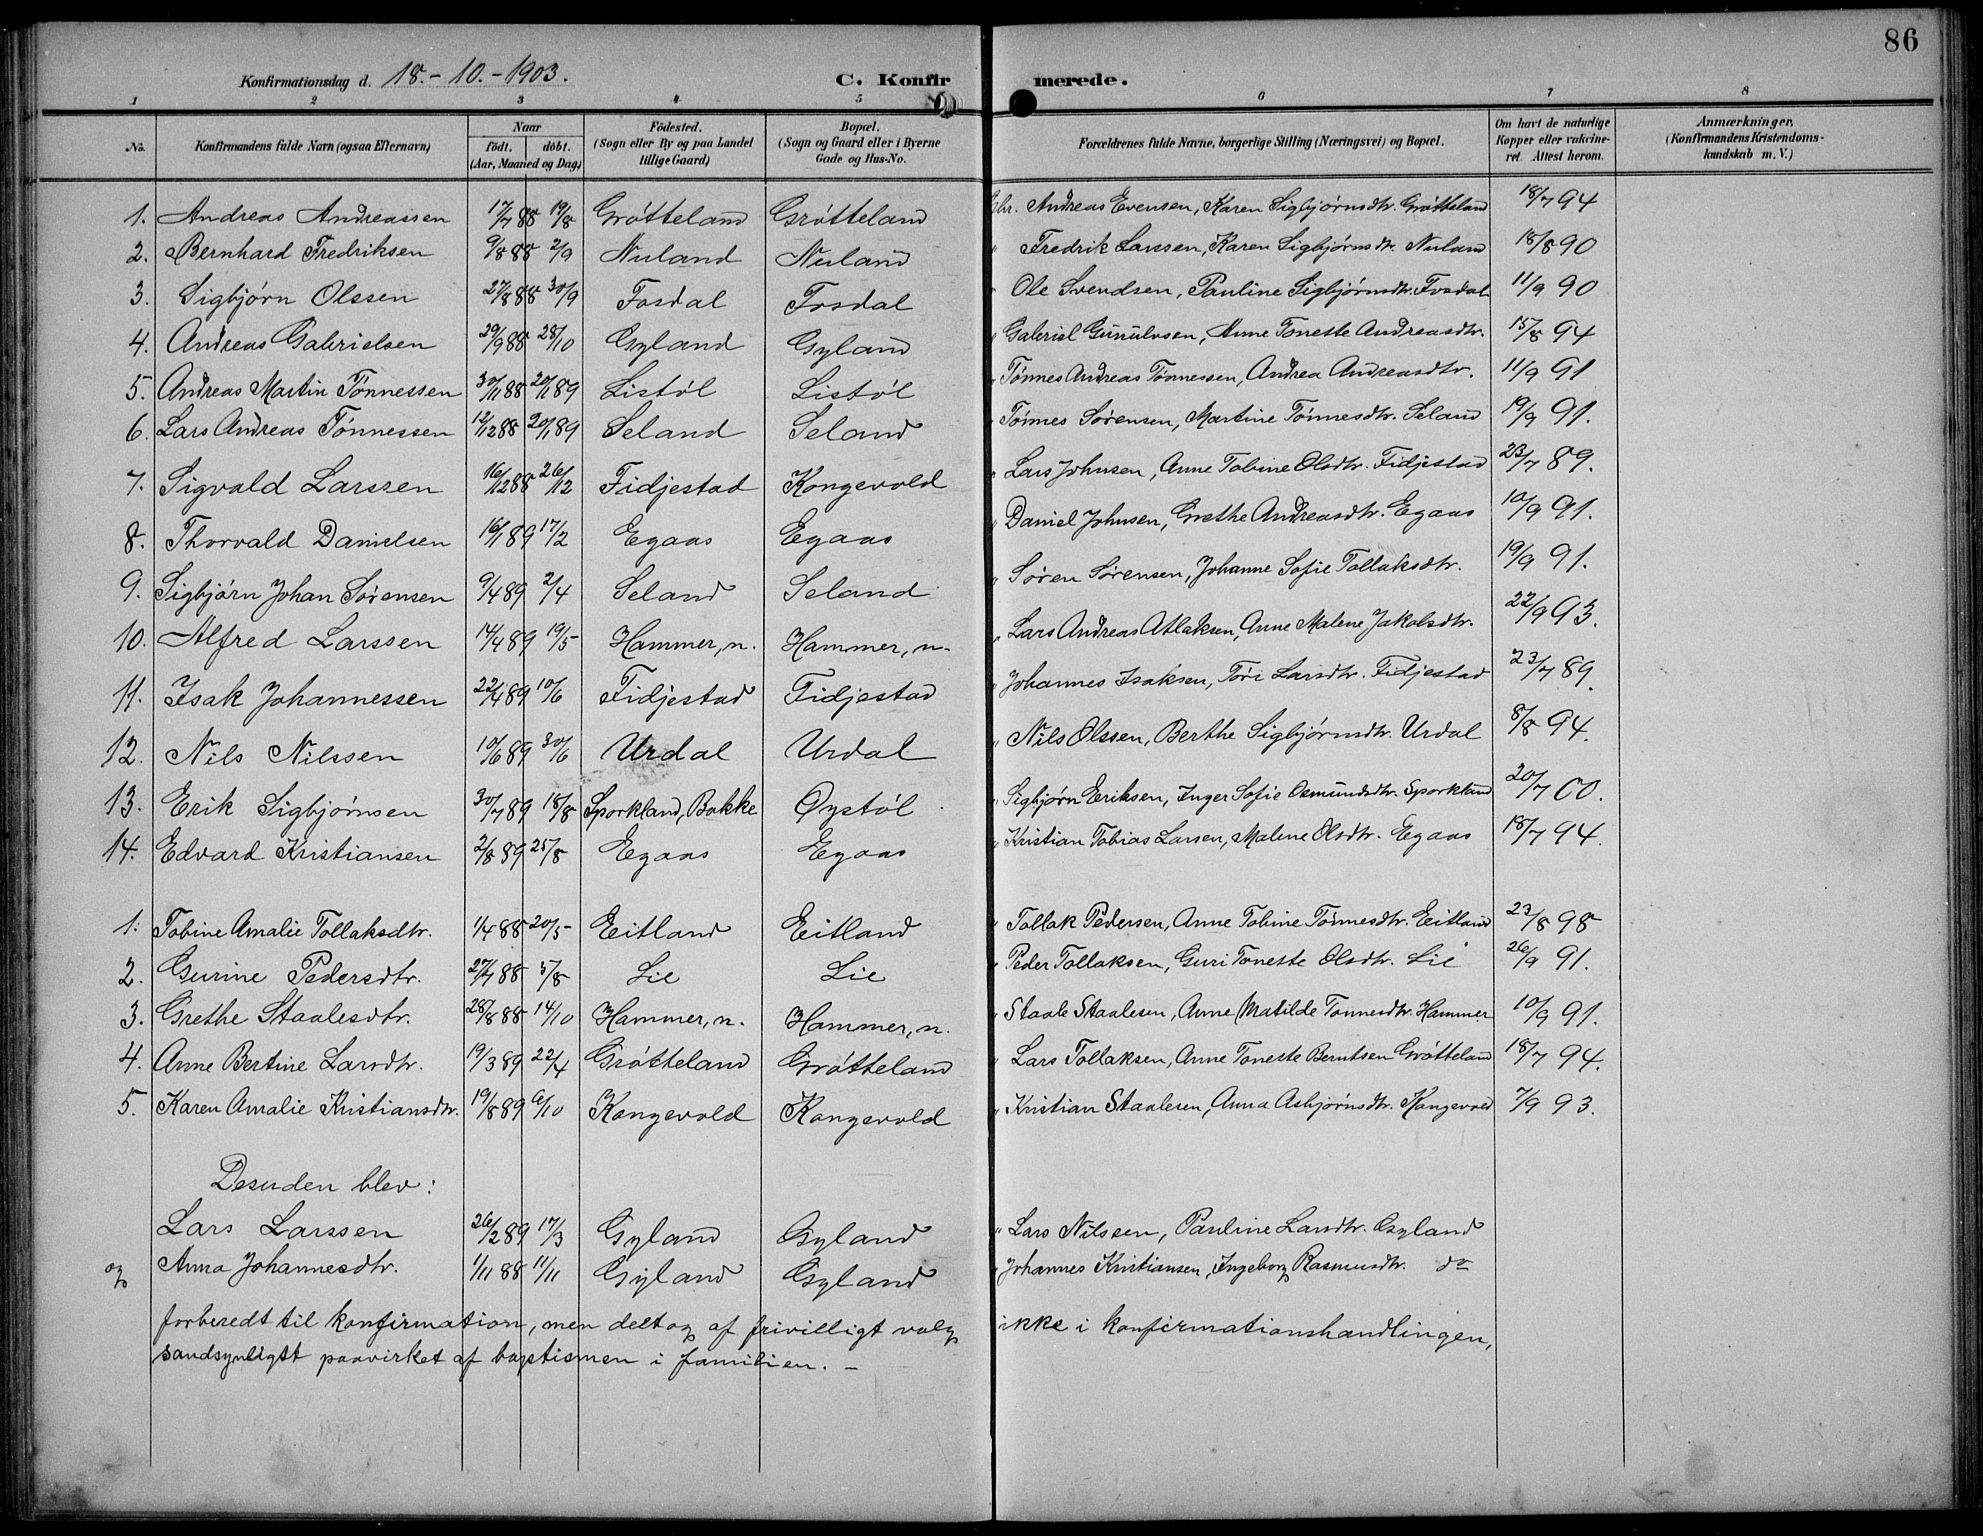 86
Konfirmationsdag d. 18.-10.-1903. C. Konfirmerede.
1 2 3 4 5 6 7 8
No. Konfirmandens fulde Navn (ogsaa Efternavn) Naar født. døbt. (Aar, Maaned og Dag) Fødested. (Sogn eller By og paa Landet tillige Gaard) Bopæl. (Sogn og Gaard eller i Byerne Gade og Hus-No. Forældrenes fulde Navne, borgerlige Stilling (Næringsvei) og Bopæl. Om havt de naturlige Kopper eller vakcineret. Attest herom. Anmærkninger. (Konfirmandens Kristendomskundskab m. V.)
1. Andreas Andreassen 17/7 88 19/8 Grøtteland Grøtteland Gbr. Andreas Evensen, Karen Sigbjørnsdtr. Grøtteland 18/7 94
2. Bernhard Fredriksen 9/8 88 2/9 Nuland Nuland " Fredrik Larssen, Karen Sigbjørnsdtr. Nuland 18/8 90
3. Sigbjørn Olssen 27/8 88 30/9 Fosdal Fosdal " Ole Svendsen, Pauline Sigbjørnsdtr. Fosdal 11/9 90
4. Andreas Gabrielsen 29/9 88 28/10 Gyland Gyland " Gabriel Gunulvsen, Anne Toneste Andreasdtr. 15/8 94
5. Andreas Martin Tønnessen 30/11 88 20/1 89 Listøl Listøl " Tønnes Andreas Tønnessen, Andrea Andreasdtr. 11/9 91
6. Lars Andreas Tønnessen 12/12 88 20/1 89 Seland Seland " Tønnes Sørensen, Martine Tønnesdtr. Seland 19/9 91.
7. Sigvald Larssen 16/12 88 26/12 Fidjestad Kongevold " Lars Johnsen, Anne Tobine Olsdtr. Fidjestad 23/7 89.
8. Thorvald Danielsen 16/1 89 17/2 Egaas Egaas " Daniel Johnsen, Grethe Andreasdtr. Egaas 10/9 91.
9. Sigbjørn Johan Sørensen 9/4 89 2/4 Seland Seland " Søren Sørensen, Johanne Sofie Tollaksdtr. 19/9 91.
10. Alfred Larssen 14/4 89 19/5 Hammer, n. Hammer, n. " Lars Andreas Atlaksen, Anne Malene Jakobsdtr. 22/9 93.
11. Isak Johannessen 22/4 89 10/6 Fidjestad Fidjestad " Johannes Isaksen, Tøri Larsdtr. Fidjestad 23/7 89.
12. Nils Nilssen 10/6 89 30/6 Urdal Urdal " Nils Olssen, Berthe Sigbjørnsdtr. Urdal 8/8 94.
13. Erik Sigbjørnsen 30/7 89 18/8 Sporkland, Bakke Øystøl " Sigbjørn Eriksen, Inger Sofie Osmundsdtr. Sporkland 20/7 00.
14. Edvard Kristiansen 2/8 89 25/8 Egaas Egaas " Kristian Tobias Larsen, Malene Olsdtr. Egaas 18/7 94.
1. Tobine Amalie Tollaksdtr. 1/4 88 20/5 Eitland Eitland " Tollak Pedersen, Anne Tobine Tønnesdtr. Eitland 23/8 98
2. Gurine Pedersdtr. 27/7 88 5/8 Lie Lie " Peder Tollaksen, Guri Toneste Olsdtr. Lie 26/9 91.
3. Grethe Staalesdtr. 28/8 88 14/10 Hammer, n. Hammer, n. " Staale Staalesen, Anne Matilde Tønnesdtr. Hammer 10/9 91.
4. Anne Bertine Larsdtr. 19/3 89 22/4 Grøtteland Grøtteland " Lars Tollaksen, Anne Toneste Berntsen Grøtteland 18/7 94.
5. Karen Amalie Kristiansdtr. 19/8 89 6/10 Kongevold Kongevold " Kristian Staalesen, Anna Asbjørnsdtr. Kongevold 7/9 93.
Desuden blev:
Lars Larssen 26/2 89 17/3 Gyland Gyland " Lars Nilssen, Pauline Larsdtr. Gyland
og Anna Johannesdtr. 1/11 88 11/11 Gyland Gyland " Johannes Kristiansen, Ingeborg Rasmusdtr. do
forberedt til konfirmation, men deltog af frivilligt valg ikke i konfirmationshandlingen,
sandsynligst paavirket af baptismen i familien. –